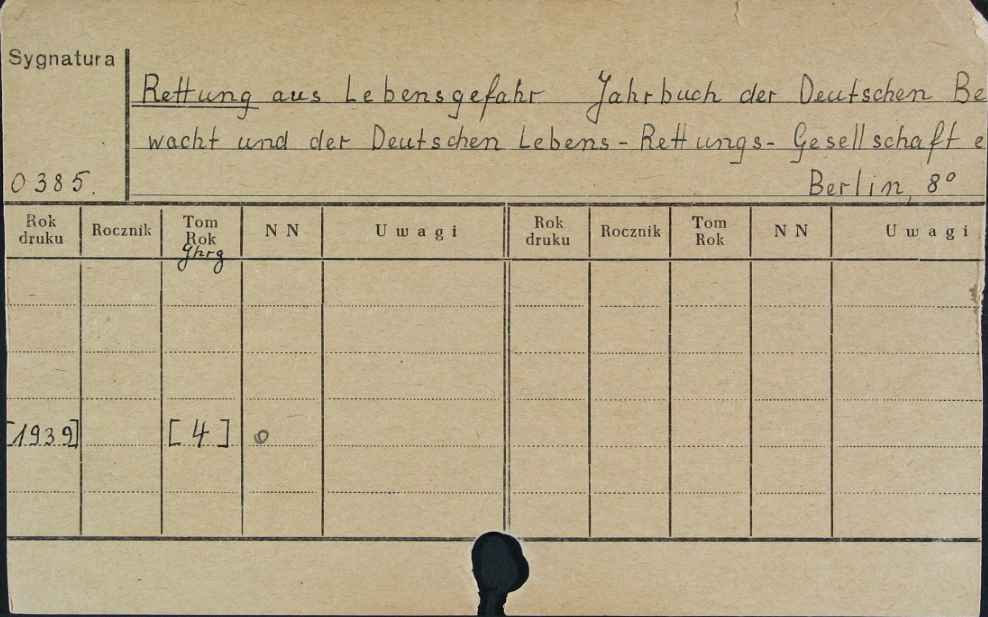 Sygnatura
Rettung aus Lebensgefahr Jahrbuch der Deutschen Be
wacht und der Deutschen Lebens-Rettungs-Gesellschaft e
0385. Berlin, 8°
Rok druku Rocznik Tom Rok Jhrg NN Uwagi Rok druku Rocznik Tom Rok NN Uwagi
[1939] [4] o